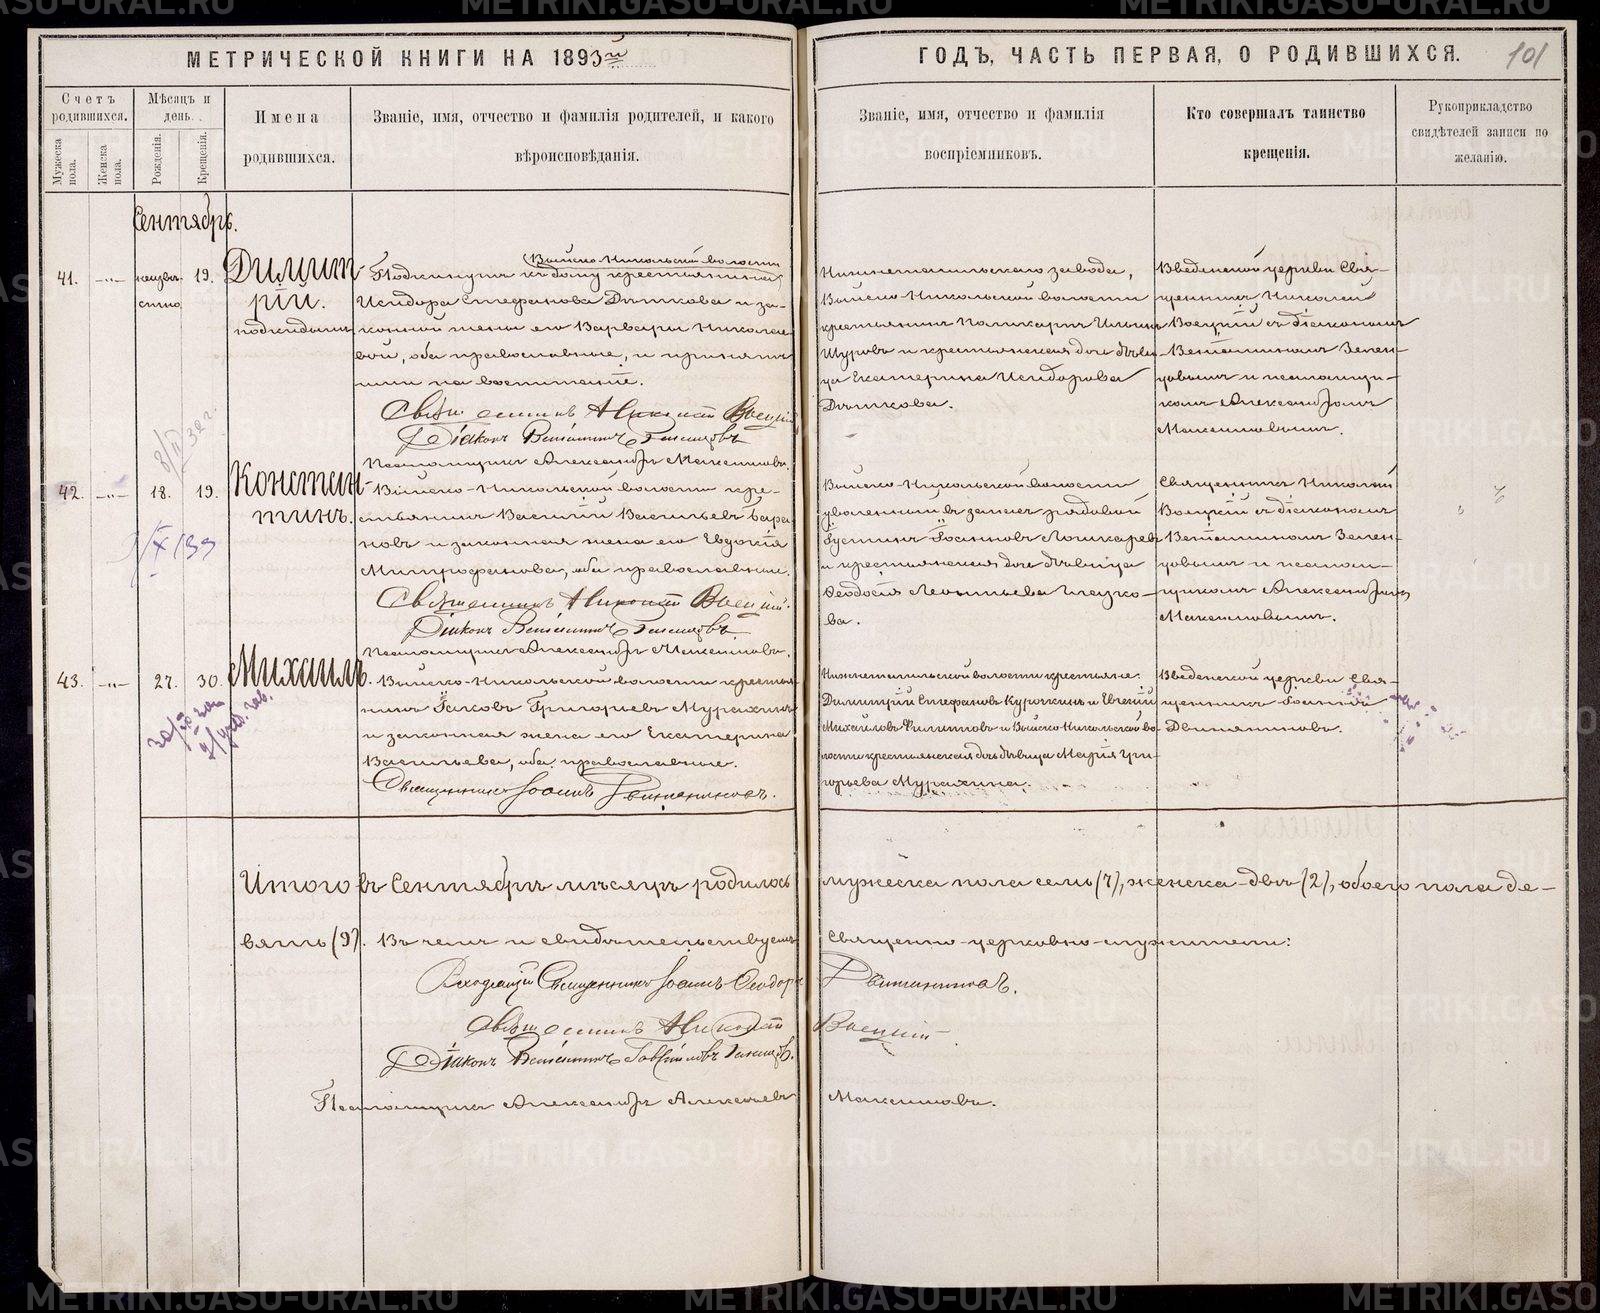 МЕТРИЧЕСКОЙ КНИГИ НА 1893й
ГОДЪ, ЧАСТЬ ПЕРВАЯ, О РОДИВШИХСЯ.
101
Счетъ родившихся.
Мужеска пола.
Женска пола.
Мѣсяцъ и день.
Рожденія.
Крещенія.
Имена
родившихся.
Званіе, имя, отчество и фамилія родителей, и какого
вѣроисповѣданія.
Званіе, имя, отчество и фамилія
воспріемниковъ.
Кто совершалъ таинство
крещенія.
Рукоприкладство
свидѣтелей записи по
желанію.
Сентябрь.
41. -"- неизвѣстно 19. Димитрій.
подкидышъ
Выйско-Никольской волости
Подкинутъ къ дому крестьянина
Исидора Стефанова Дѣткова и за-
конной жены его Варвары Николае-
вой, оба православные, и принятъ
ими на воспитаніе.
Священникъ Николай Воецкій
Діаконъ Веніаминъ Зеленцовъ
Псаломщикъ Александръ Макситовъ.
Нижнетагильскаго завода,
Выйско-Никольской волости
крестьянинъ Поликарпъ Ильинъ
Щуровъ и крестьянская дочь дѣви-
ца Екатерина Исидорова
Дѣткова.
Введенской церкви Свя-
щенникъ Николай
Воецкій съ діакономъ
Веніаминомъ Зелен-
цовымъ и псаломщи-
комъ Александромъ
42. -"- 18. 19. Констан-
тинъ.
Выйско-Никольской волости кре-
стьянинъ Василій Васильевъ Бара-
новъ и законная жена его Евдокія
Митрофанова, оба православные.
Священникъ Николай Воецкій.
Діаконъ Веніаминъ Зеленцовъ
Выйско-Никольской волости
уволенный въ запасъ рядовой
Іустинъ Іоанновъ Лошкаревъ
и крестьянская дочь дѣвица
Ѳеодосія Леонтьева Глухо-
ва.
Священникъ Николай
Воецкій съ діакономъ
Веніаминомъ Зелен-
цовымъ и псалом-
щикомъ Александромъ
43. -"- 27. 30. Михаилъ.
Выйско-Никольской волости крестья-
нинъ Іаковъ Григорьевъ Мурахинъ
и законная жена его Екатерина
Васильева, оба православные.
Священникъ Іоаннъ Двиняниновъ.
Нижнетагильской волости крестьяне:
Димитрій Стефановъ Курочкинъ и Евгеній
Михайловъ Филиповъ и Выйско-Никольской во-
лости крестьянская дочь дѣвица Марія Гри-
горьева Мурахина.
Введенской церкви Свя-
щенникъ Іоаннъ
Двиняниновъ.
Итого въ Сентябрѣ мѣсяцѣ родилось мужеска пола семь (7), женска - двѣ (2), обоего пола де-
вять (9). Въ чемъ и свидѣтельствуемъ Священно-церковно-служители:
Священникъ Іоаннъ Ѳеодоръ Двиняниновъ.
Священникъ Николай Воецкій
Діаконъ Веніаминъ Гавріиловъ Зеленцовъ.
Псаломщикъ Александръ Алексѣевъ
METRIKI.GASO-URAL.RU